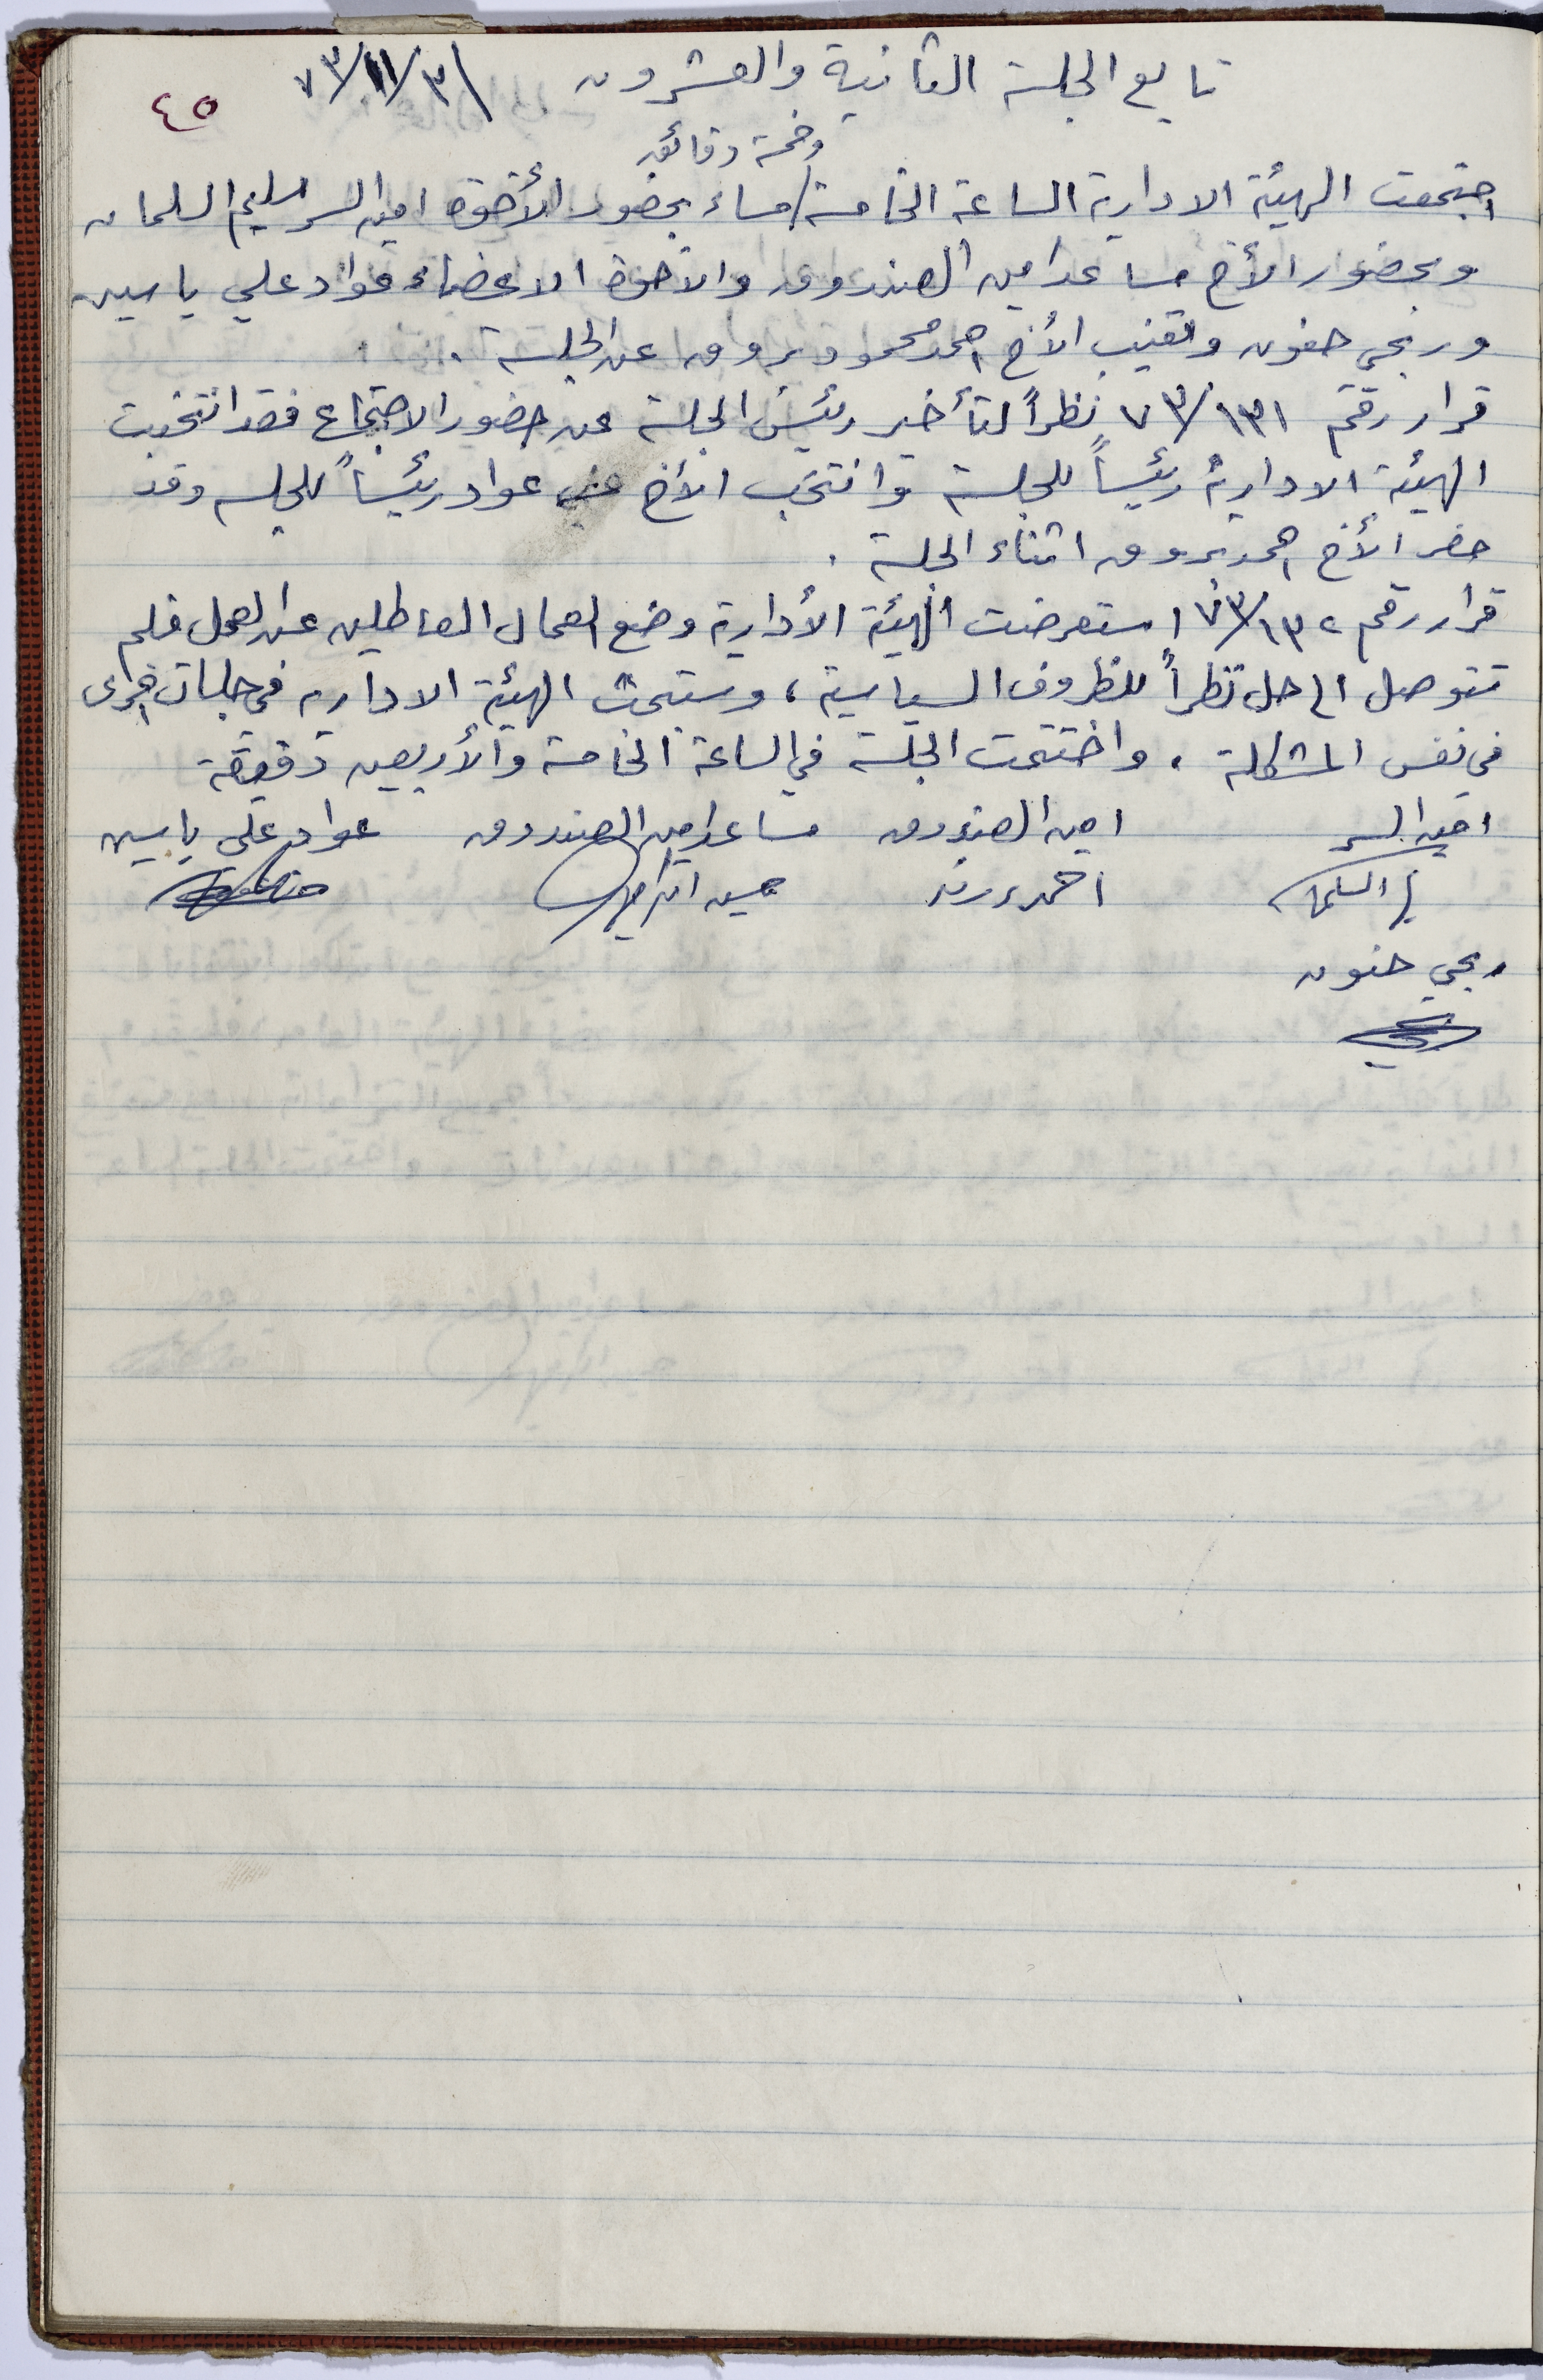 تابع الجلسة الثانية والعشرون ٧٣/١١/٣١
٤٥
وخمسة دقائق
اجتمعت الهيئة الادارية الساعة الخامسة/مساء بحضور الأخوة امين السر سليم السلمان
وبحضور الأخ مساعد امين الصندوق والاخوة الاعضاء عواد علي ياسين
وربحي حنون وتغيب الأخ احمد محمود برووق عن الجلسة .
قرار رقم ٧٣/١٣١ نظراً لتأخير رئيس الجلسة عن حضور الاجتماع فقد انتخبت
الهيئة الادارية رئيساً للجلسة وانتخب الأخ عواد رئيساً للجلسه وقد
حضر الأخ احمد برووق اثناء الجلسة .
قرار رقم ٧٣/١٣٢ استعرضت الهيئة الأدارية وضع العمال العاطلين عن العمل فلم
تتوصل الى حل نظراً للظروف السياسية ، وستبحث الهيئة الاداريه في جلسات اخرى
في نفس المشكلة . واختتمت الجلسة في الساعة الخامسة والأربعين دقيقة
امين السر امين الصندوق مساعد امين الصندوق عواد علي ياسين
السلمان احمد حسين
ربحي حنون